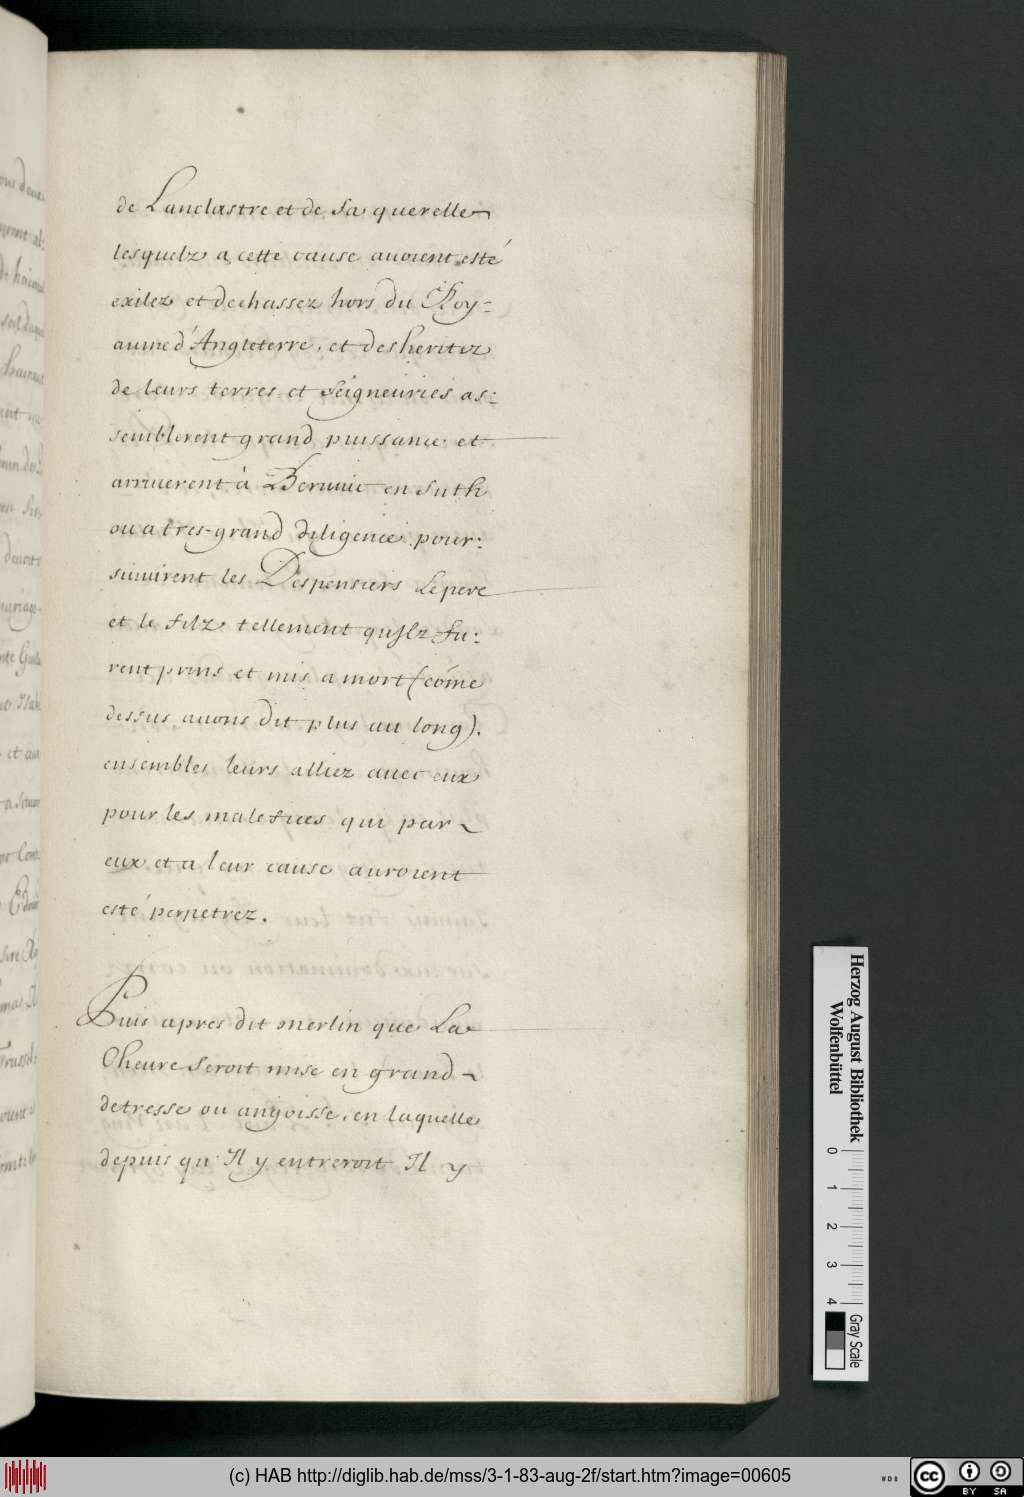 de Lanclastre et de sa querelle
lesquelz a cette cause avoient esté
exilez et dechassez hors du Roy=
aume d'Angleterre, et desheritez
de leurs terres et Seigneuries as:
semblerent grand puissance et
arriuerent à Beruuic en Suth
ou a tres-grand diligence pour:
suiuirent les Despensiers Le pere
et le filz tellement qu'Ilz fu:
rent prins et mis a mort (cōme
dessus auons dit plus au long).
ensembles leurs alliez auec eux
pour les malefices qui par
eux et a leur cause auroient
esté perpetrez.
Puis apres dit merlin que La
Cheure seroit mise en grand
detresse ou angoisse, en laquelle
depuis qu'Il y entreroit Il y
Herzog August Bibliothek
Wolfenbüttel
0 1 2 3 4
Gray Scale
(c) HAB http://diglib.hab.de/mss/3-1-83-aug-2f/start.htm?image=00605
cc BY SA